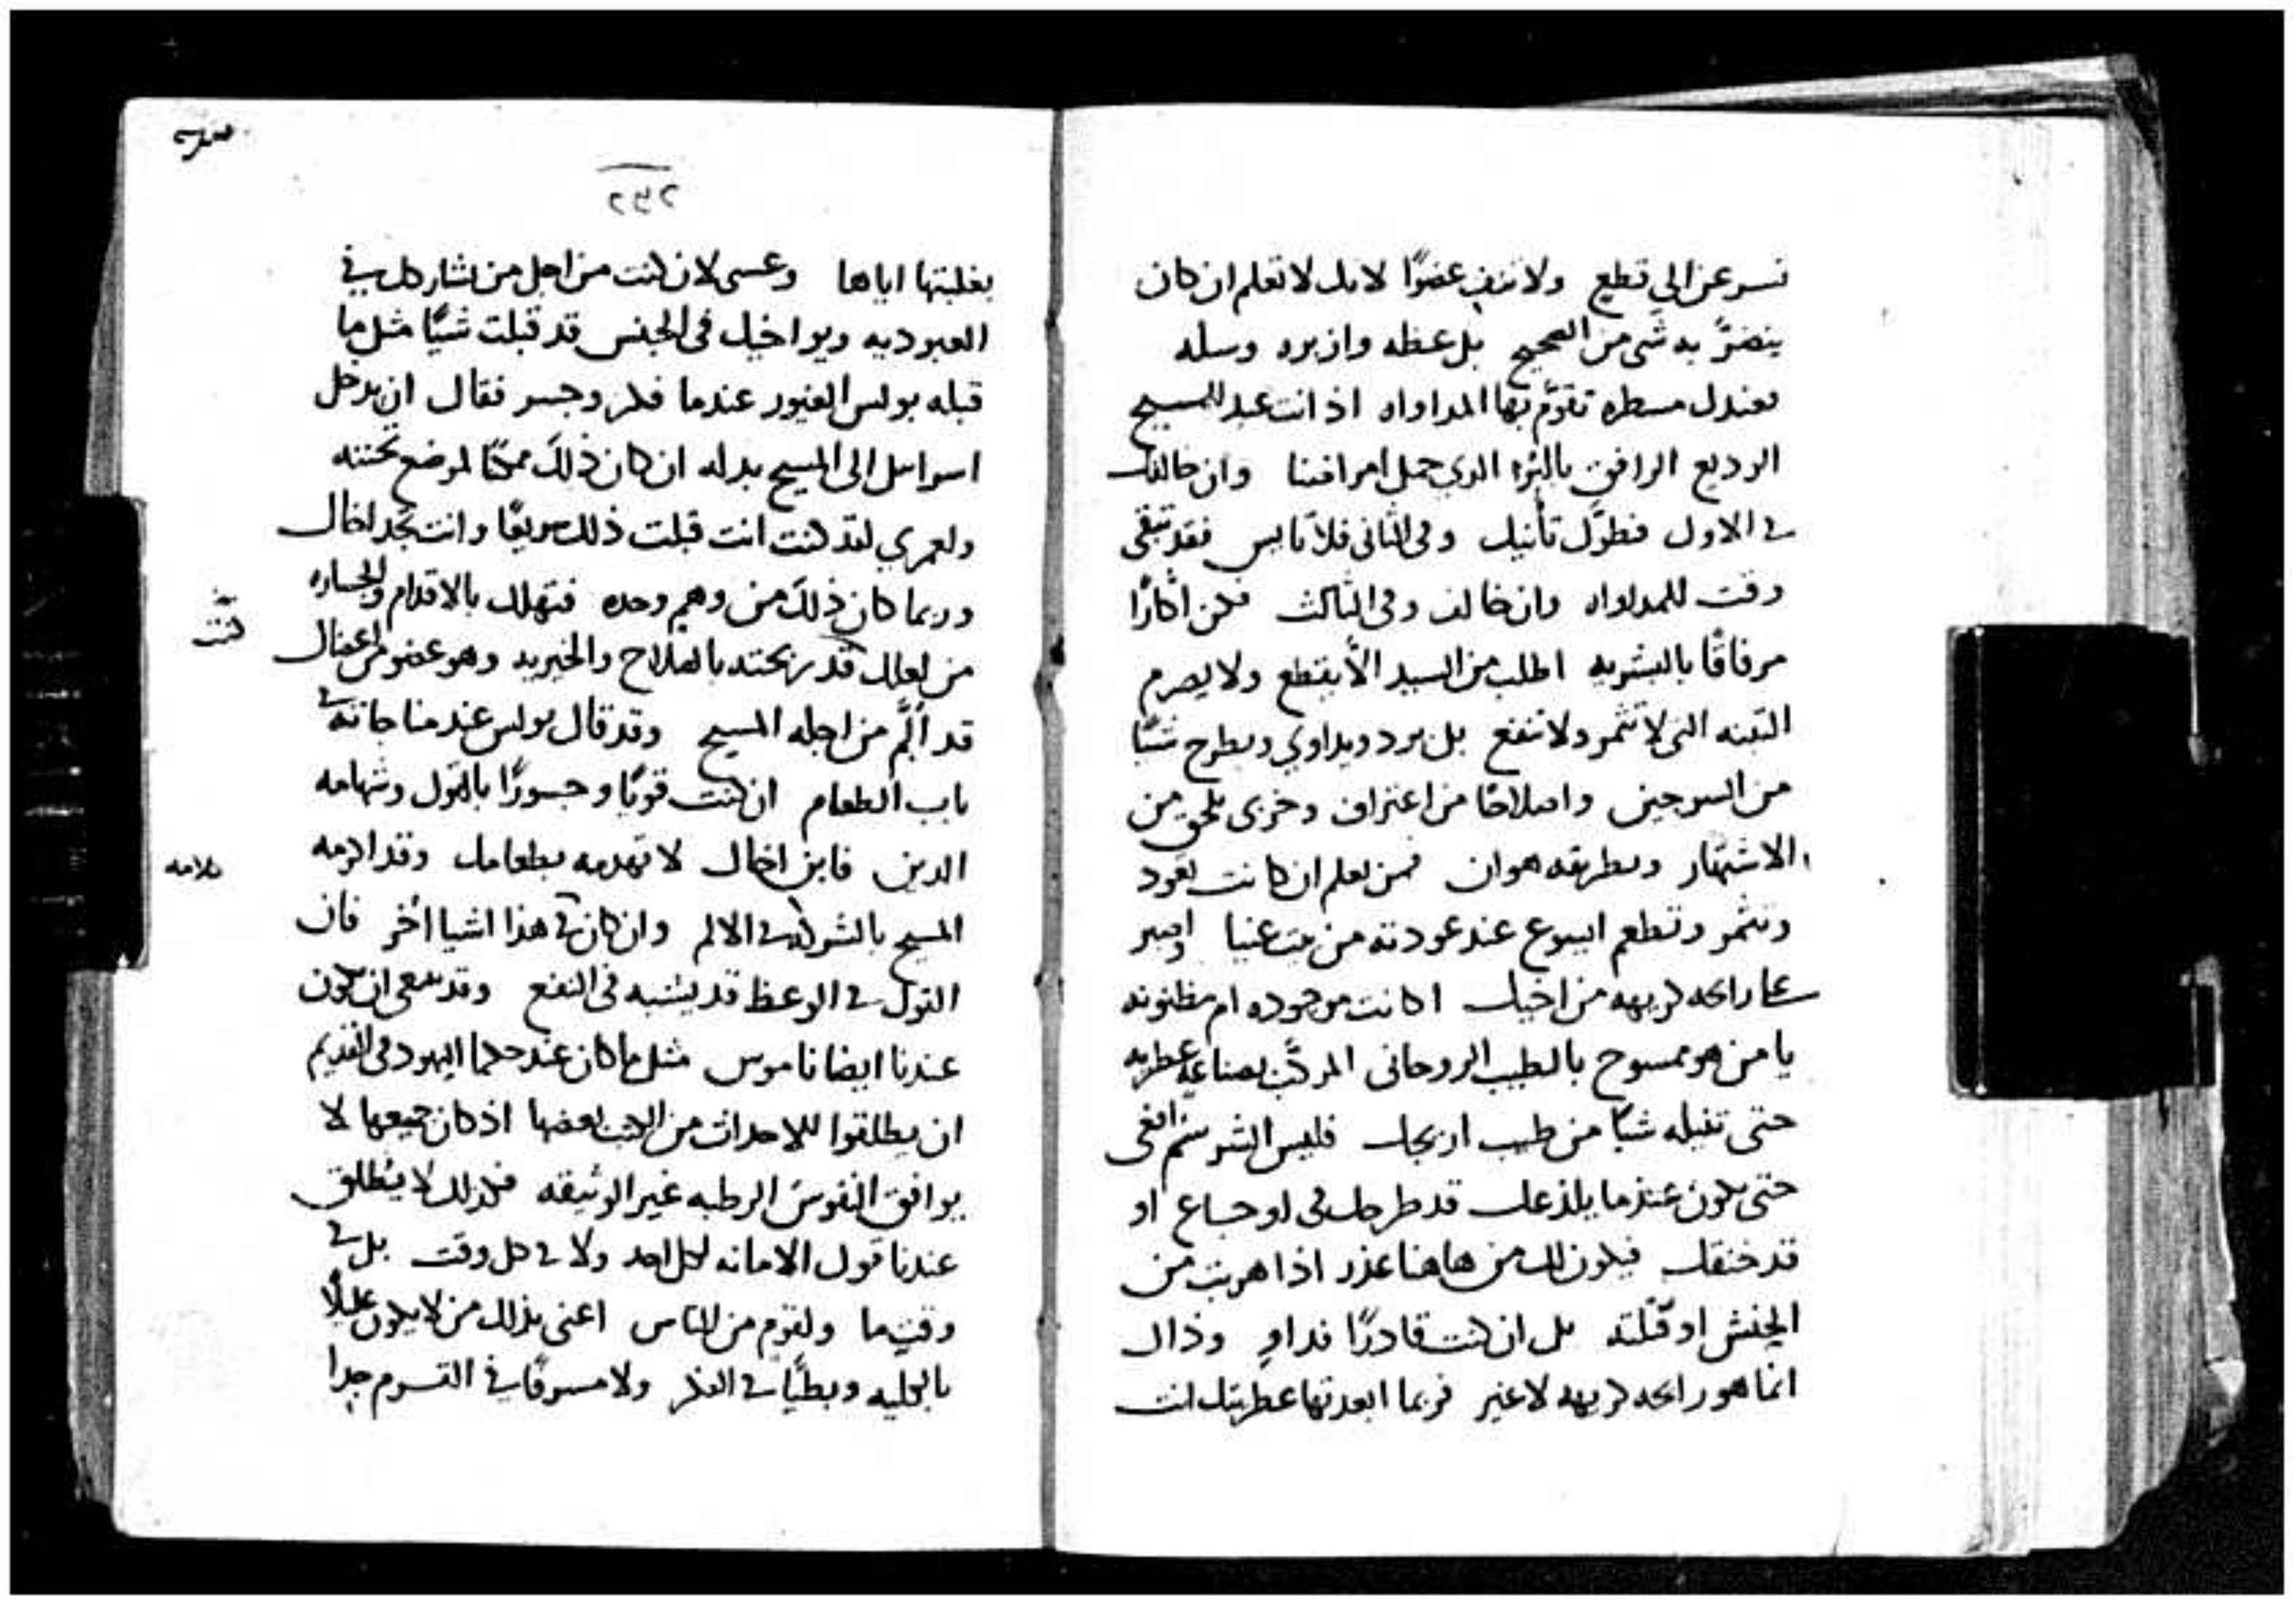 تسرعن الي قطع ولا تنف عضوًا لانك لا تعلم ان كان
ينضرّ به شي من الصحيح بل عظه وازبره وسله
فعندك مسطره تقوّم بها المداواه اذ انت عبد للمسيح
الوديع الرافق بالبشر الدي حمل امراضنا وان خالفك
في الاول فطوّل تأنيك وفي الثاني فلا تايس فقد تبقى
وقت للمداواه وان خالف وفي الثالث فكن اكارًا
مرفاقًا بالبشريه اطلب من السيد الّا يقطع ولا يصرم
التينه التي لا تثمر ولا تنفع بل يرد ويداوي ويطرح شيًا
من السرجين واصلاحًا من اعتراف وخزي يلحق من
الاشتهار وبطريقه هوان فمن يعلم ان كانت تعود
وتثمر وتطعم ايسوع عند عودته من بيت عنيا واصبر
على رايحه كريهه من اخيك اكانت موجوده ام مظنونه
يا من هو ممسوح بالطيب الروحاني المركّب بصناعه عطريه
حتى تنيله شيًا من طيب اريحك فليس الشر سم افعى
حتى يكون عندما يلذعك قد طرحك في اوجاع او
قد خنقك فيكون لك من هاهنا عذر اذا هربت من
الحنش او قتلته بل ان كنت قادرًا فداوِ وذاك
انما هو رايحه كريهه لا غير فربما ابعدتها عطريتك انت
كس
٢٤٢
بغلبتها اياها وعسى لان كنت من اجل من يشاركك في
العبوديه ويواخيك في الجنس قد قبلت شيًا مثل ما
قبله بولس الغيور عندما فكر وجسر فقال ان يدخل
اسرائيل الى المسيح بدله ان كان ذلك ممكنًا لموضع تحننه
ولعمري لقد كنت انت قبلت ذلك سريعًا وانت تجد اخاك
وربما كان ذلك من وهم وحده فتهلك بالاقدام والجساره
من لعلك قد ربحته بالصلاح والخيريه وهو عضو من اعضاك
كنت
قد ألّم من اجله المسيح وقد قال بولس عند مناجاته في
باب الطعام ان كنت قويًا وجسورًا بالقول وشهامه
الدين فابن اخاك لا تهدمه بطعامك وقد اكرمه
كلامه
المسيح بالشركه في الالم وان كان في هذا اشيا اخر فان
القول في الوعظ قد يشبه في النفع وقد ينبغي ان يكون
عندنا ايضا ناموس مثل ما كان عند حكما اليهود في القديم
ان يطلقوا للاحداث من الكتب بعضها اذ كان جميعها لا
يوافق النفوس الرطبه غير الوثيقه فكذلك لا ينطلق
عندنا قول الامانه لكل احد ولا في كل وقت بل في
وقتٍ ما ولقوم من الناس اعني بذلك من لا يكون عليلًا
بالكليه وبطيًا في الفكر ولا مسرفًا في التقدم جدا